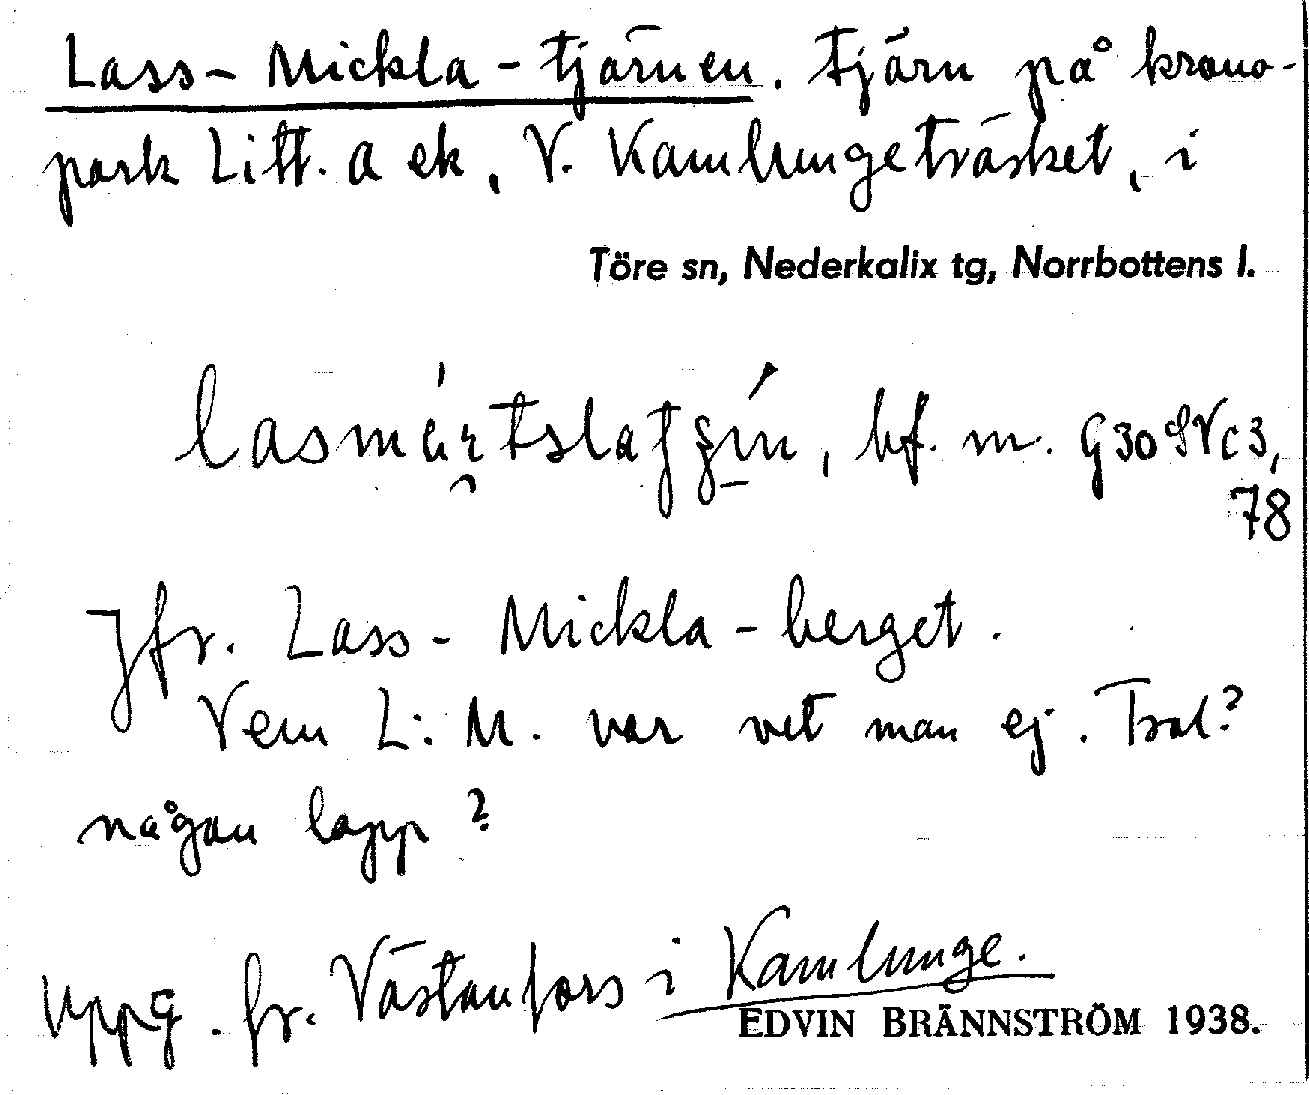 Lass-Mickla-tjärnen. Tjärn på krono-
park Litt. a ek, V. Kamlungeträsket, i
Töre sn, Nederkalix tg, Norrbottens l.
bf. m. G30 SV c3,
78
Jfr. Lass-Mickla-berget.
Vem L:M. var vet man ej. Trol?
någon lapp?
Uppg. fr. Västanfors i Kamlunge.
EDVIN BRÄNNSTRÖM 1938.